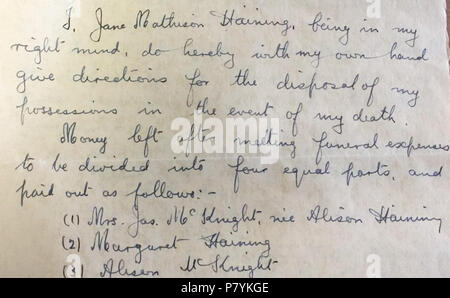 I, Jane Mathison Haining, being in my
right mind, do hereby with my own hand
give directions for the disposal of my
possessions in the event of my death.
Money left after meeting funeral expenses
to be divided into four equal parts, and
paid out as follows:-
(1) Mrs. Jas. McKnight, née Alison Haining
(2) Margaret Haining
(3) Alison McKnight
alamy
a
a
Image ID: P7YKGE
www.alamy.com